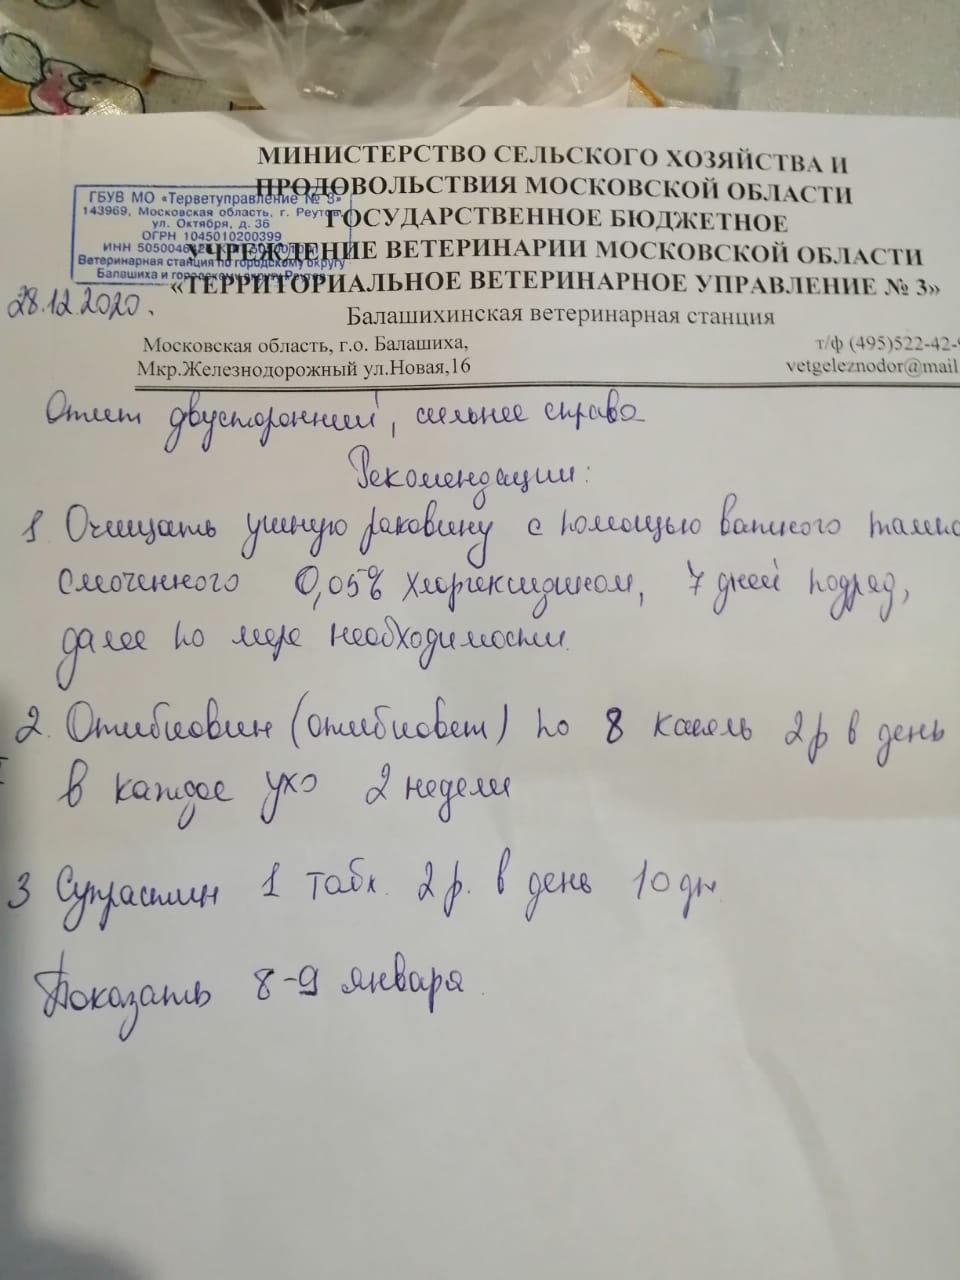 МИНИСТЕРСТВО СЕЛЬСКОГО ХОЗЯЙСТВА И
ПРОДОВОЛЬСТВИЯ МОСКОВСКОЙ ОБЛАСТИ
ГОСУДАРСТВЕННОЕ БЮДЖЕТНОЕ
УЧРЕЖДЕНИЕ ВЕТЕРИНАРИИ МОСКОВСКОЙ ОБЛАСТИ
«ТЕРРИТОРИАЛЬНОЕ ВЕТЕРИНАРНОЕ УПРАВЛЕНИЕ № 3»
Балашихинская ветеринарная станция
ГБУВ МО «Терветуправление № 3»
143969, Московская область, г. Реутов,
ул. Октября, д. 36
ОГРН 1045010200399
ИНН
Ветеринарная станция по городскому округу
Балашиха и городскому округу Реутов
28.12.2020.
Московская область, г.о. Балашиха,
Мкр.Железнодорожный ул.Новая,16
т/ф (495)522-42-
vetgeleznodor@mail
Отит двусторонний, сильнее справа
Рекомендации:
1 Очищать ушную раковину с помощью ватного тампо
смоченного 0,05% хлоргексидином, 7 дней подряд,
далее по мере необходимости.
2. Отибиовин (отибиовет) по 8 капель 2р в день
в каждое ухо 2 недели
3 Супрастин 1 табл. 2 р. в день 10 дн.
Показать 8-9 января.